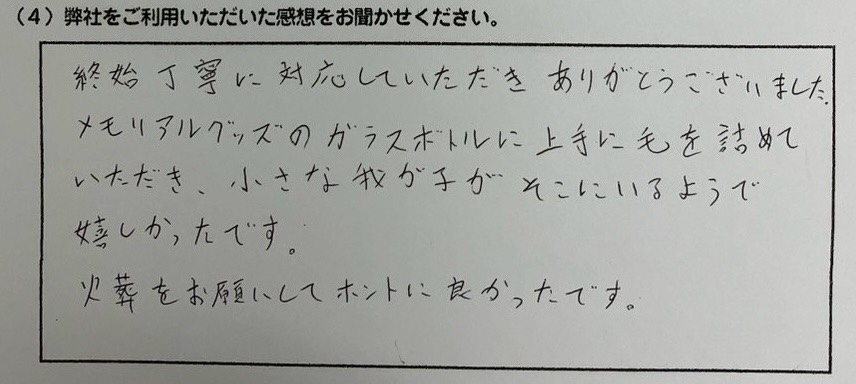 （4）弊社をご利用いただいた感想をお聞かせください。
終始丁寧に対応していただきありがとうございました。
メモリアルグッズのガラスボトルに上手に毛を詰めて
いただき、小さな我が子がそこにいるようで
嬉しかったです。
火葬をお願いしてホントに良かったです。